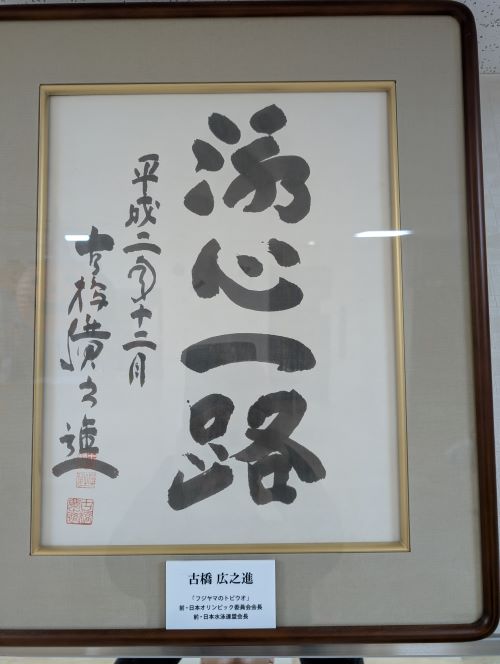 泳心一路
平成二年十二月
古橋廣之進
古橋 広之進
「フジヤマのトビウオ」
前・日本オリンピック委員会会長
前・日本水泳連盟会長